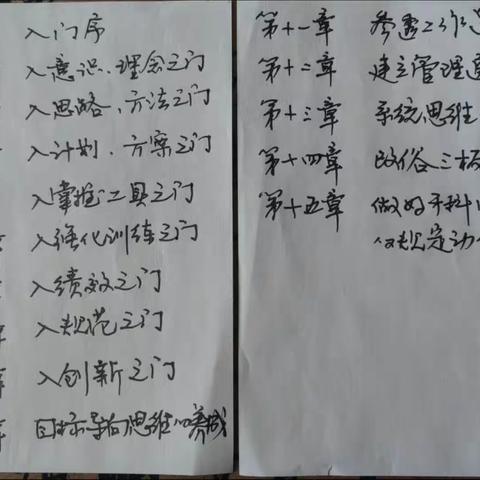 入门序
入意识、理念之门
入思路、方法之门
入计划、方案之门
入掌握工具之门
入强化训练之门
入绩效之门
入规范之门
入创新之门
目标导向思维的养成
第十一章 参透工作
第十二章 建立管理
第十三章 系统思维
第十四章 改俗三板
第十五章 做好开科
规定动